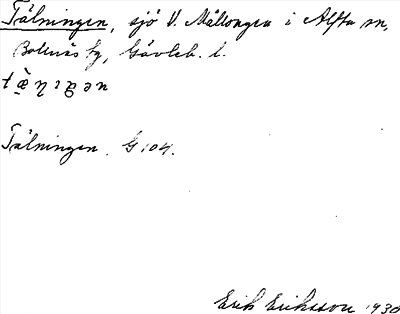 Tälningen, sjö V. Mållongen i Alfta sn,
Bollnäs tg, Gävleb. l.
Tälningen. G 104.
Erik Eriksson 1930